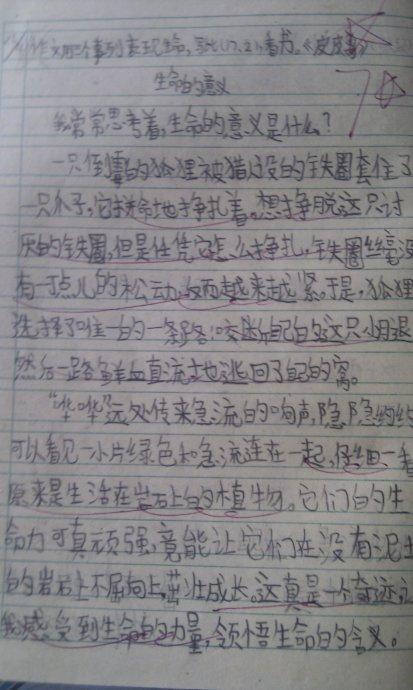 生命的意义
我常常思考着,生命的意义是什么?
一只倒霉的狐狸被猎人设的铁圈套住了
一只爪子,它拼命地挣扎着。想挣脱这只讨
厌的铁圈,但是任凭它怎么挣扎,铁圈丝毫没
有一丁点儿的松动,反而越来越紧。于是,狐狸
选择了唯一的一条路:咬断自己的这只小腿
然后一路鲜血直流地逃回了自己的窝。
“哗哗”远处传来急流的响声,隐隐约约
可以看见一小片绿色和急流连在一起,仔细一看
原来是生活在岩石上的植物。它们的生
命力可真顽强,竟能让它们在没有泥土
的岩石上不屈向上,茁壮成长。这真是一个奇迹
我感受到生命的力量,领悟生命的含义。